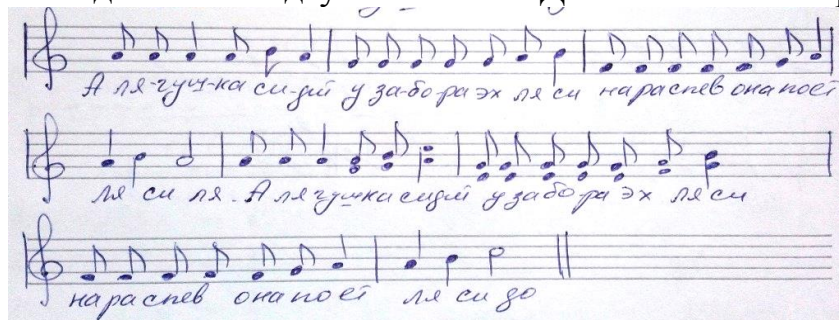 А ля-гуш-ка си-дит у за-бо-ра эх ля си нараспев она поёт
ля си ля. А лягушка сидит у забора эх ля си
нараспев она поёт ля си до